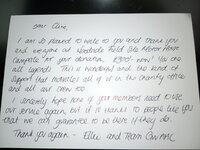 Dear Clive,
I am so pleased to write to you and thank you
and everyone at Field
for your donation. £800! wow! You are
all legends! This is wonderful and the kind of
support that motivates all of us in the charity office
and all our crew too.
I sincerely hope none of your members need to use
our service again but it is thanks to people like you
that we are guaranteed to be there if they do.
Thank you again - Ellie and Team